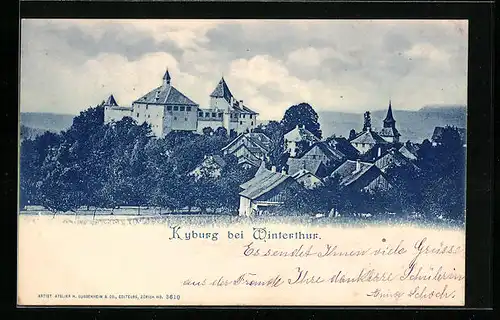 Kyburg bei Winterthur.
Es sendet Ihnen viele Grüsse
aus der Fremde Ihre dankbare Schülerin
Schoch.
ARTIST. ATELIER H. GUGGENHEIM & CO., EDITEURS, ZÜRICH NO. 3610